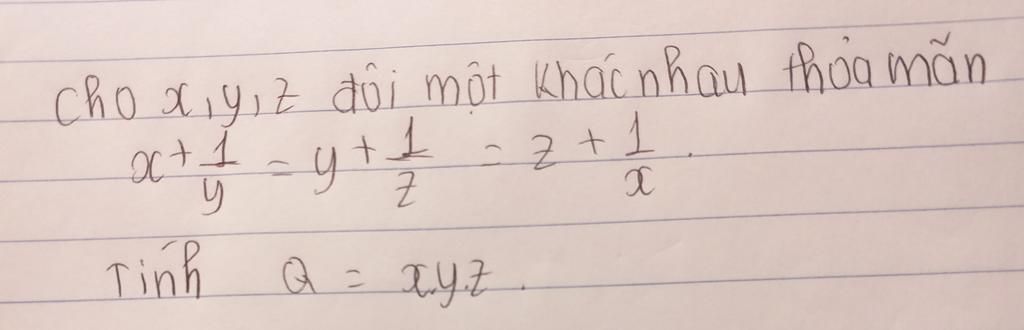 Cho x, y, z đôi một khác nhau thỏa mãn
x + 1/y = y + 1/z = z + 1/x.
Tính Q = x.y.z.